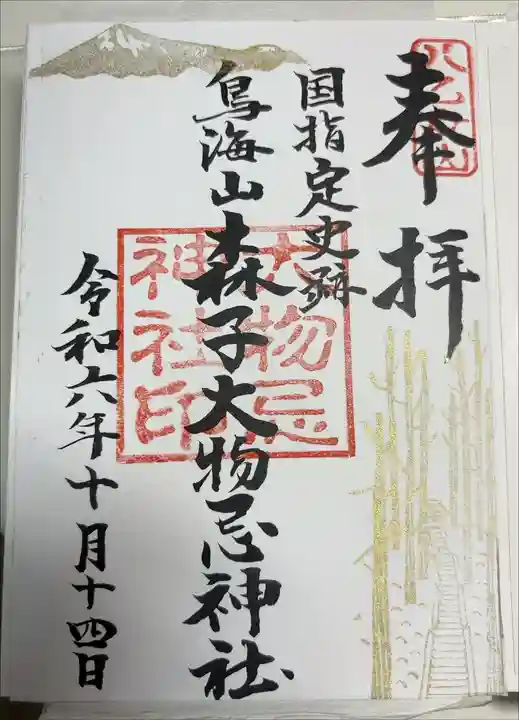 奉拝
国指定史跡
鳥海山森子大物忌神社
令和六年十月十四日
大物忌
神社印